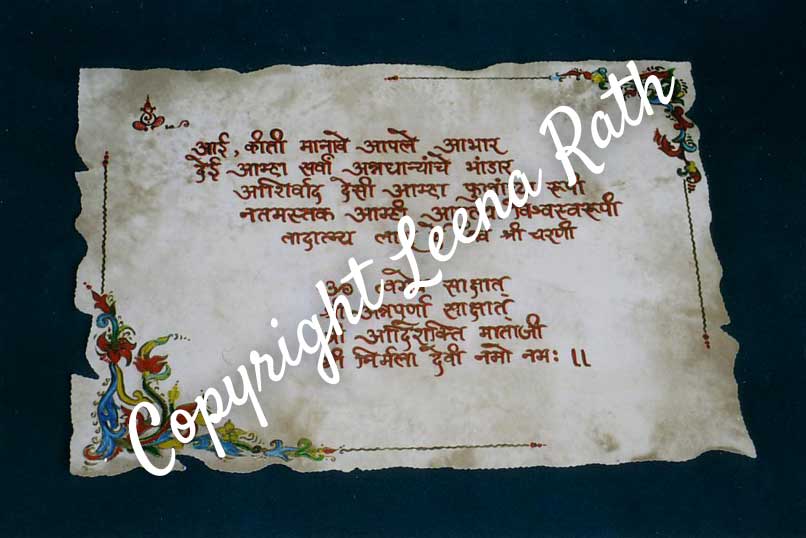 आई, कीती मानावे आपले आभार
देई आम्हा सर्वा अन्नधान्यांचे भांडार
आशिर्वाद देसी आम्हा रूपी
नतमस्तक आम्ही विश्वस्वरूपी
तादात्म्य श्री चरणी
ॐ त्वमेव साक्षात्
श्री अन्नपूर्णा साक्षात्
श्री आदिशक्ति माताजी
श्री निर्मला देवी नमो नमः ॥
Copyright Leena Rath